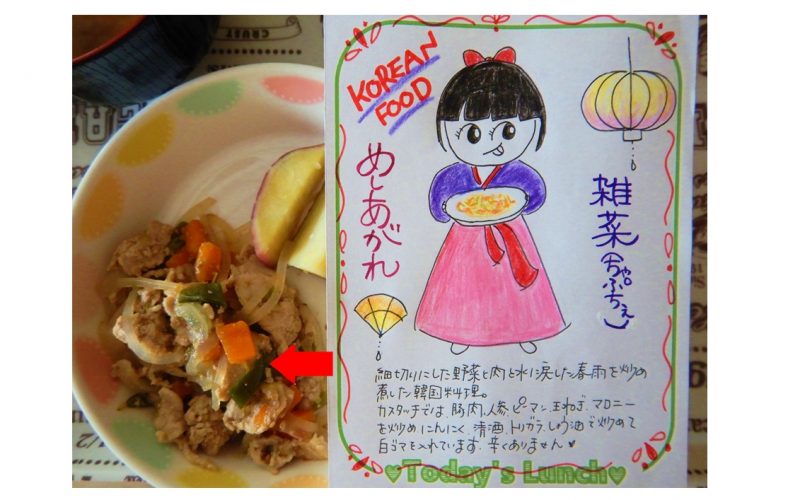 CRUSTY
KOREAN
FOOD
雑菜(ちゃぷちぇ)
めしあがれ
細切りにした野菜と肉と水に戻した春雨を炒め
煮した韓国料理。
カスタッチでは、豚肉、人参、ピーマン、玉ねぎ、マロニー
を炒め、にんにく、清酒、トリガラ、しょう油で炒めて
白ゴマを入れています。辛くありません♥
♥Today's Lunch♥